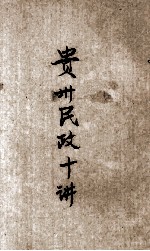 贵州民政十讲